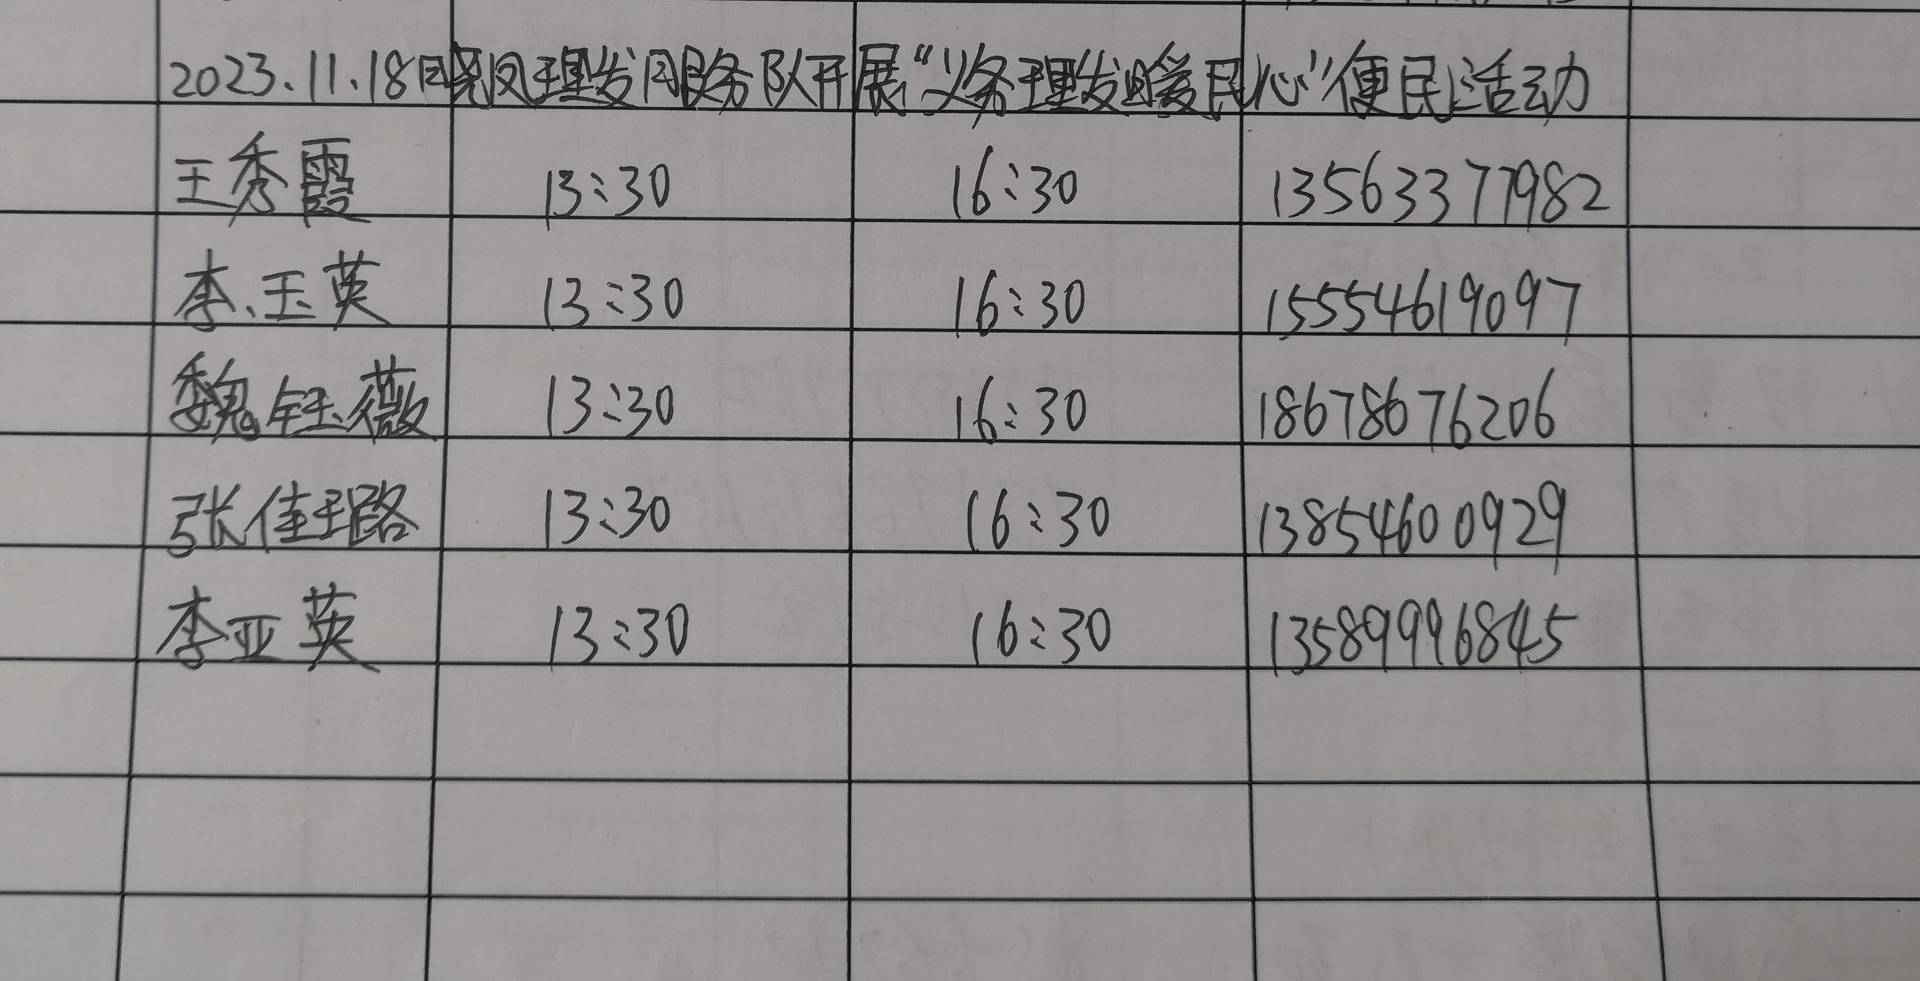 2023.11.18日晓风理发服务队开展“义务理发暖民心”便民活动
王秀霞 13:30 16:30 13563377982
李玉英 13:30 16:30 15554619097
魏钰薇 13:30 16:30 18678676206
张佳璐 13:30 16:30 13854600929
李亚英 13:30 16:30 13589996845